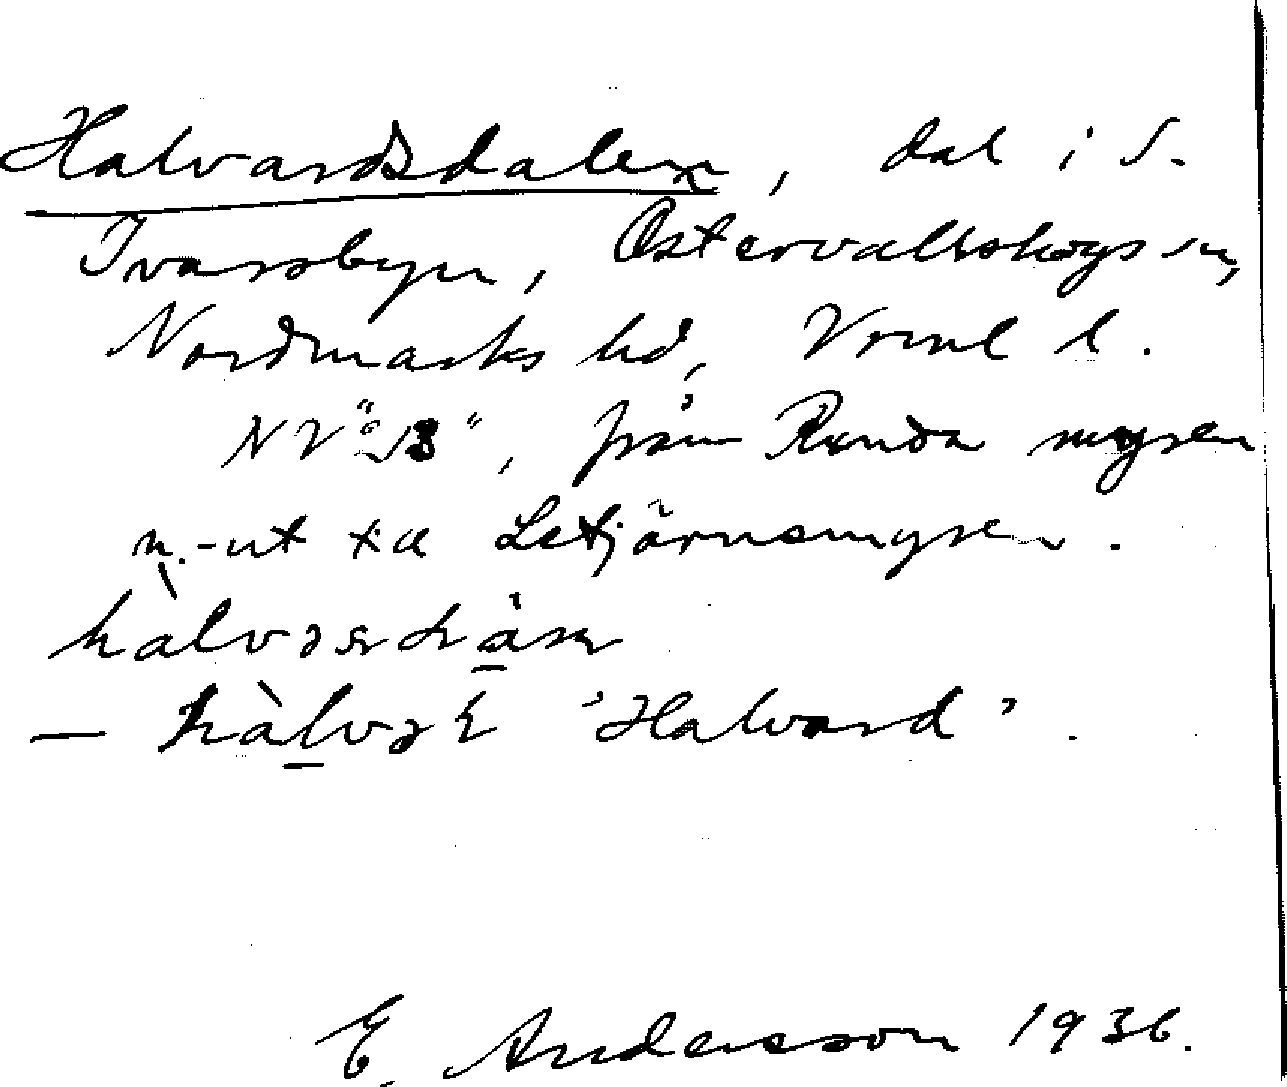 Halvardsdalen, dal i S.
Ivarsbyn, Östervallskogs sn,
Nordmarks hd, Vrml l.
NV "B", från Runda mysen
n.-ut till Letjärnsmysen.
— 'Halvard'.
E. Andersson 1936.